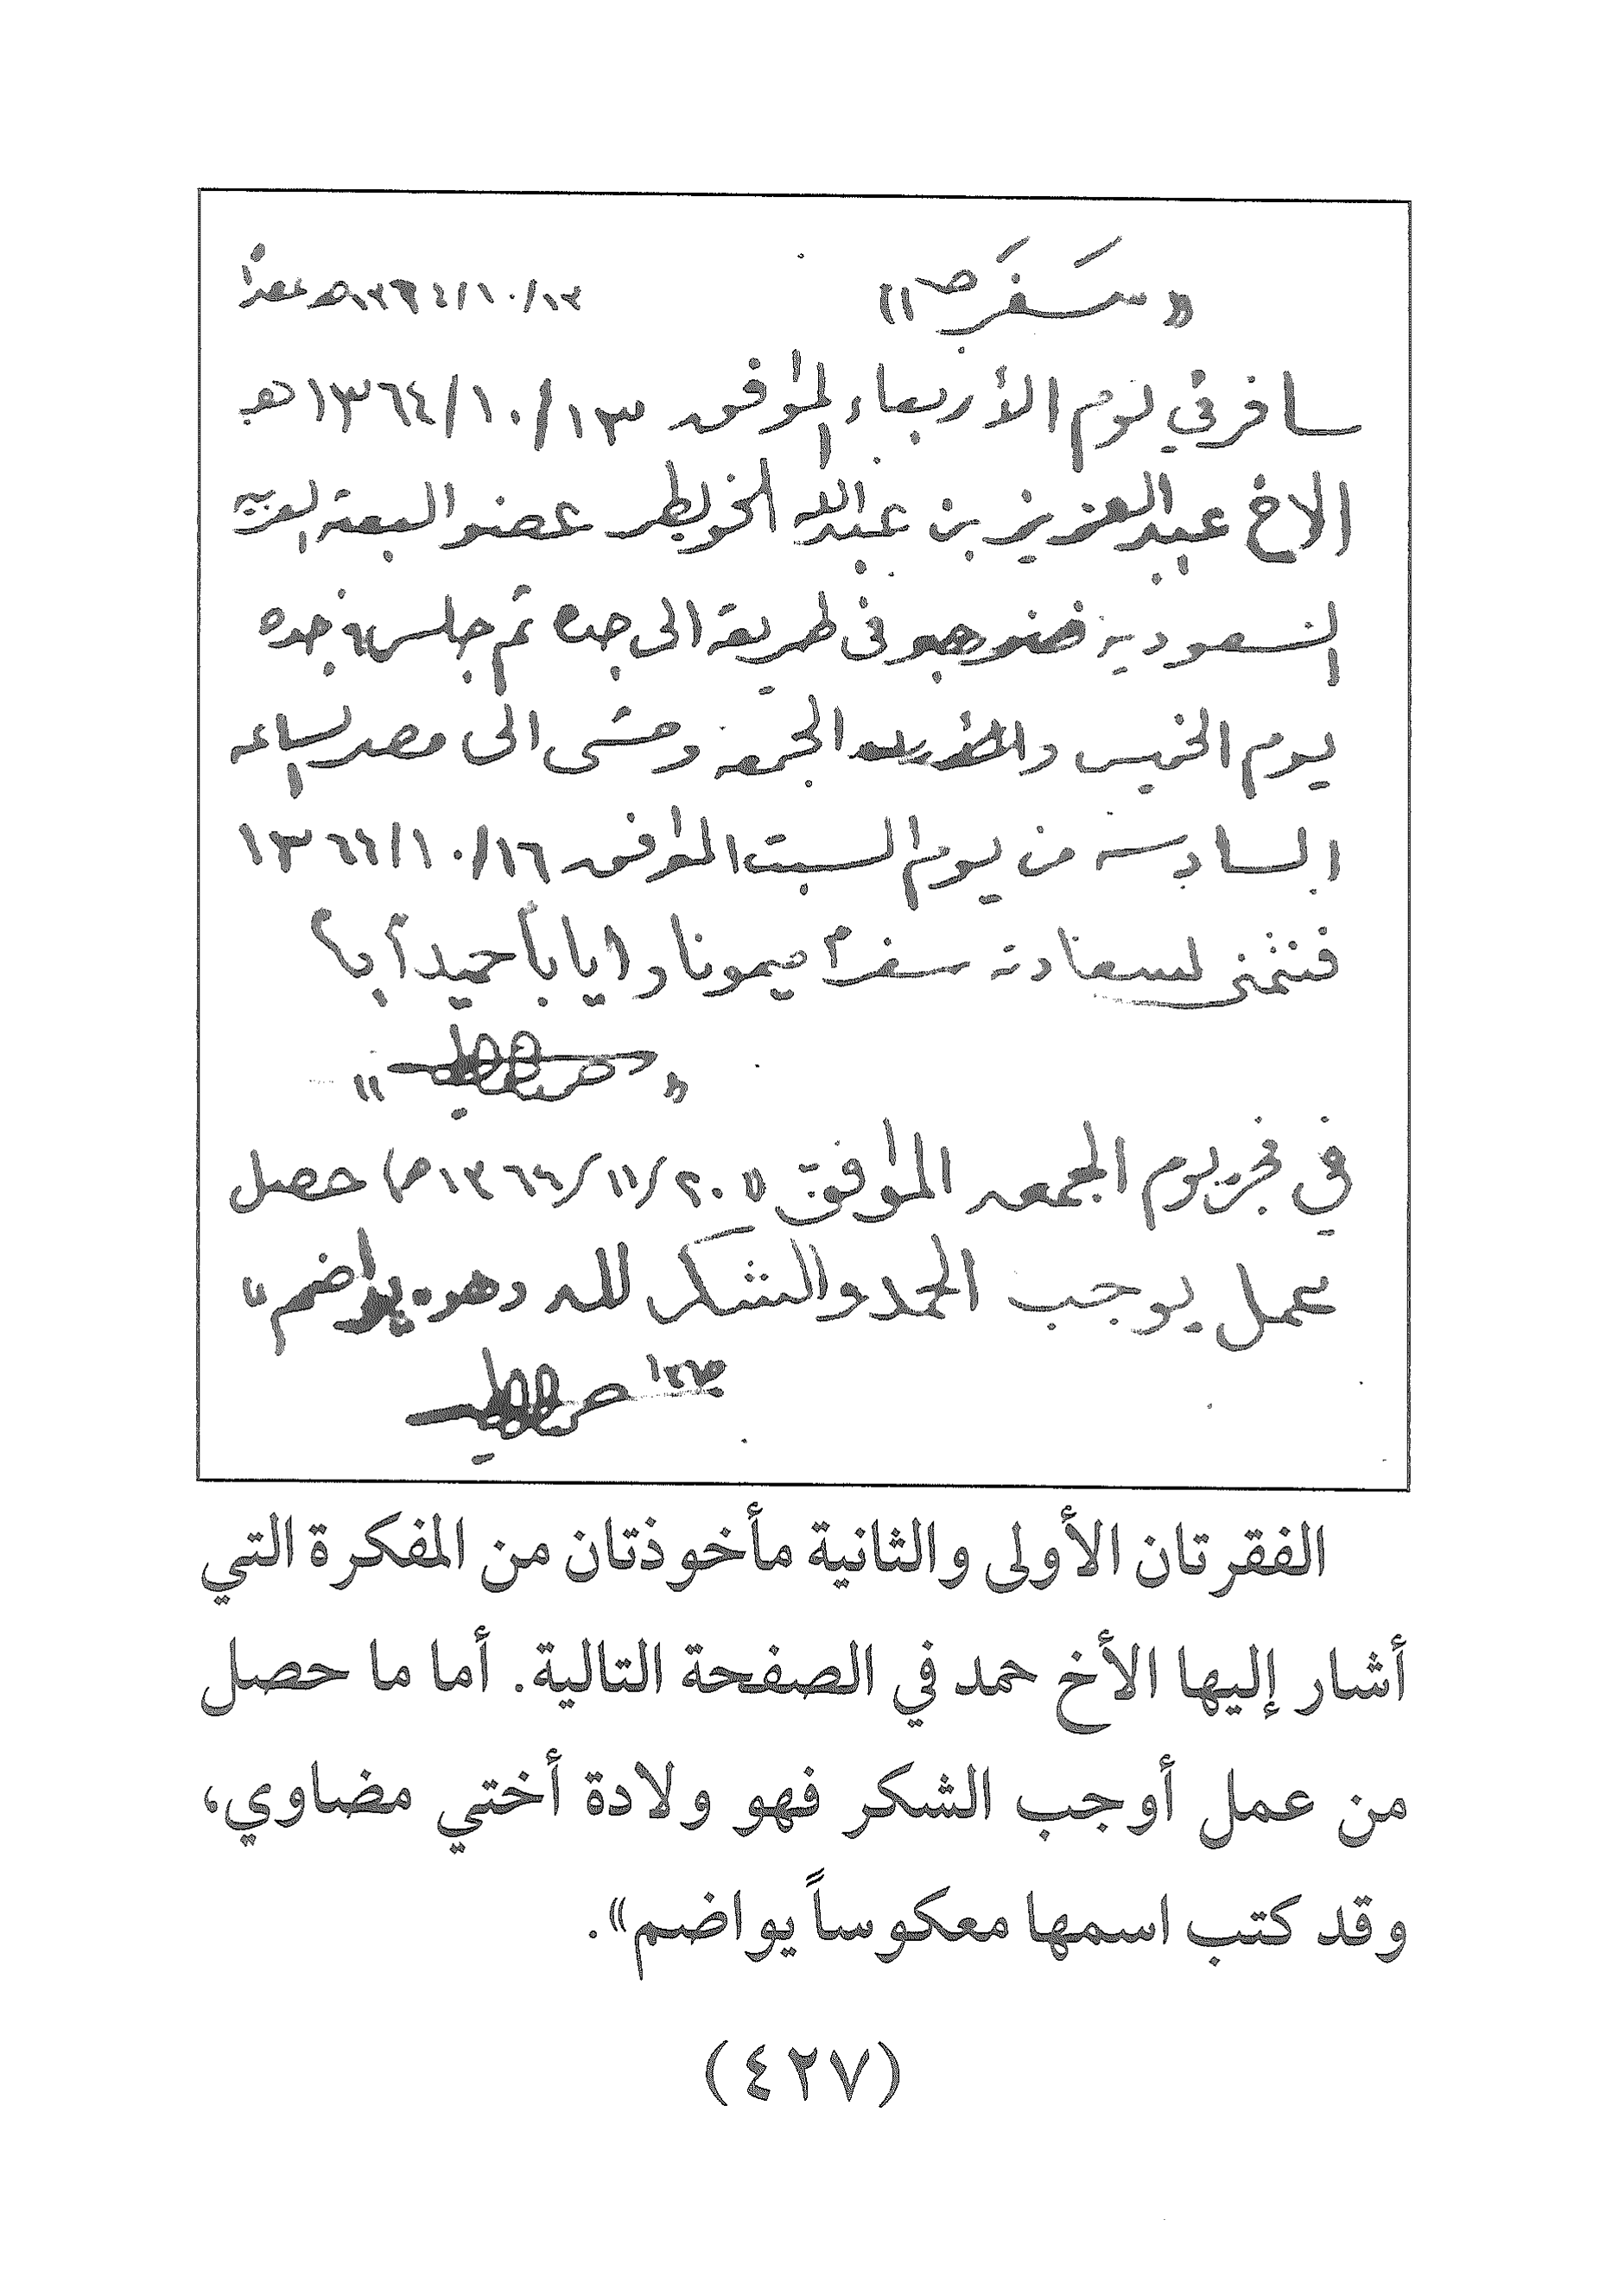 « سَفَر » ١٣/١٠/١٣٦٤هـ
سافر في يوم الأربعاء الموافق ١٣/١٠/١٣٦٤هـ
الاخ عبدالعزيز بن عبدالله الخويطر عضو البعثة العربية
السعودية فى طريقة الى جده ثم جلس جده
يوم الخميس و الجمعه ومشى الى مصر الساعه
السادسه من يوم السبت الموافق ١٦/١٠/١٣٦٤
فنتمنى لسعادته سفراً ميمونا واياباً حميداً
في فجر يوم الجمعه الموافق ٢٠/١١/١٣٦٤هـ حصل
عمل يوجب الحمد والشكر لله وهو يواضم "
الفقرتان الأولى والثانية مأخوذتان من المفكرة التي
أشار إليها الأخ حمد في الصفحة التالية. أما ما حصل
من عمل أوجب الشكر فهو ولادة أختي مضاوي،
وقد كتب اسمها معكوساً يواضم».
(٤٢٧)